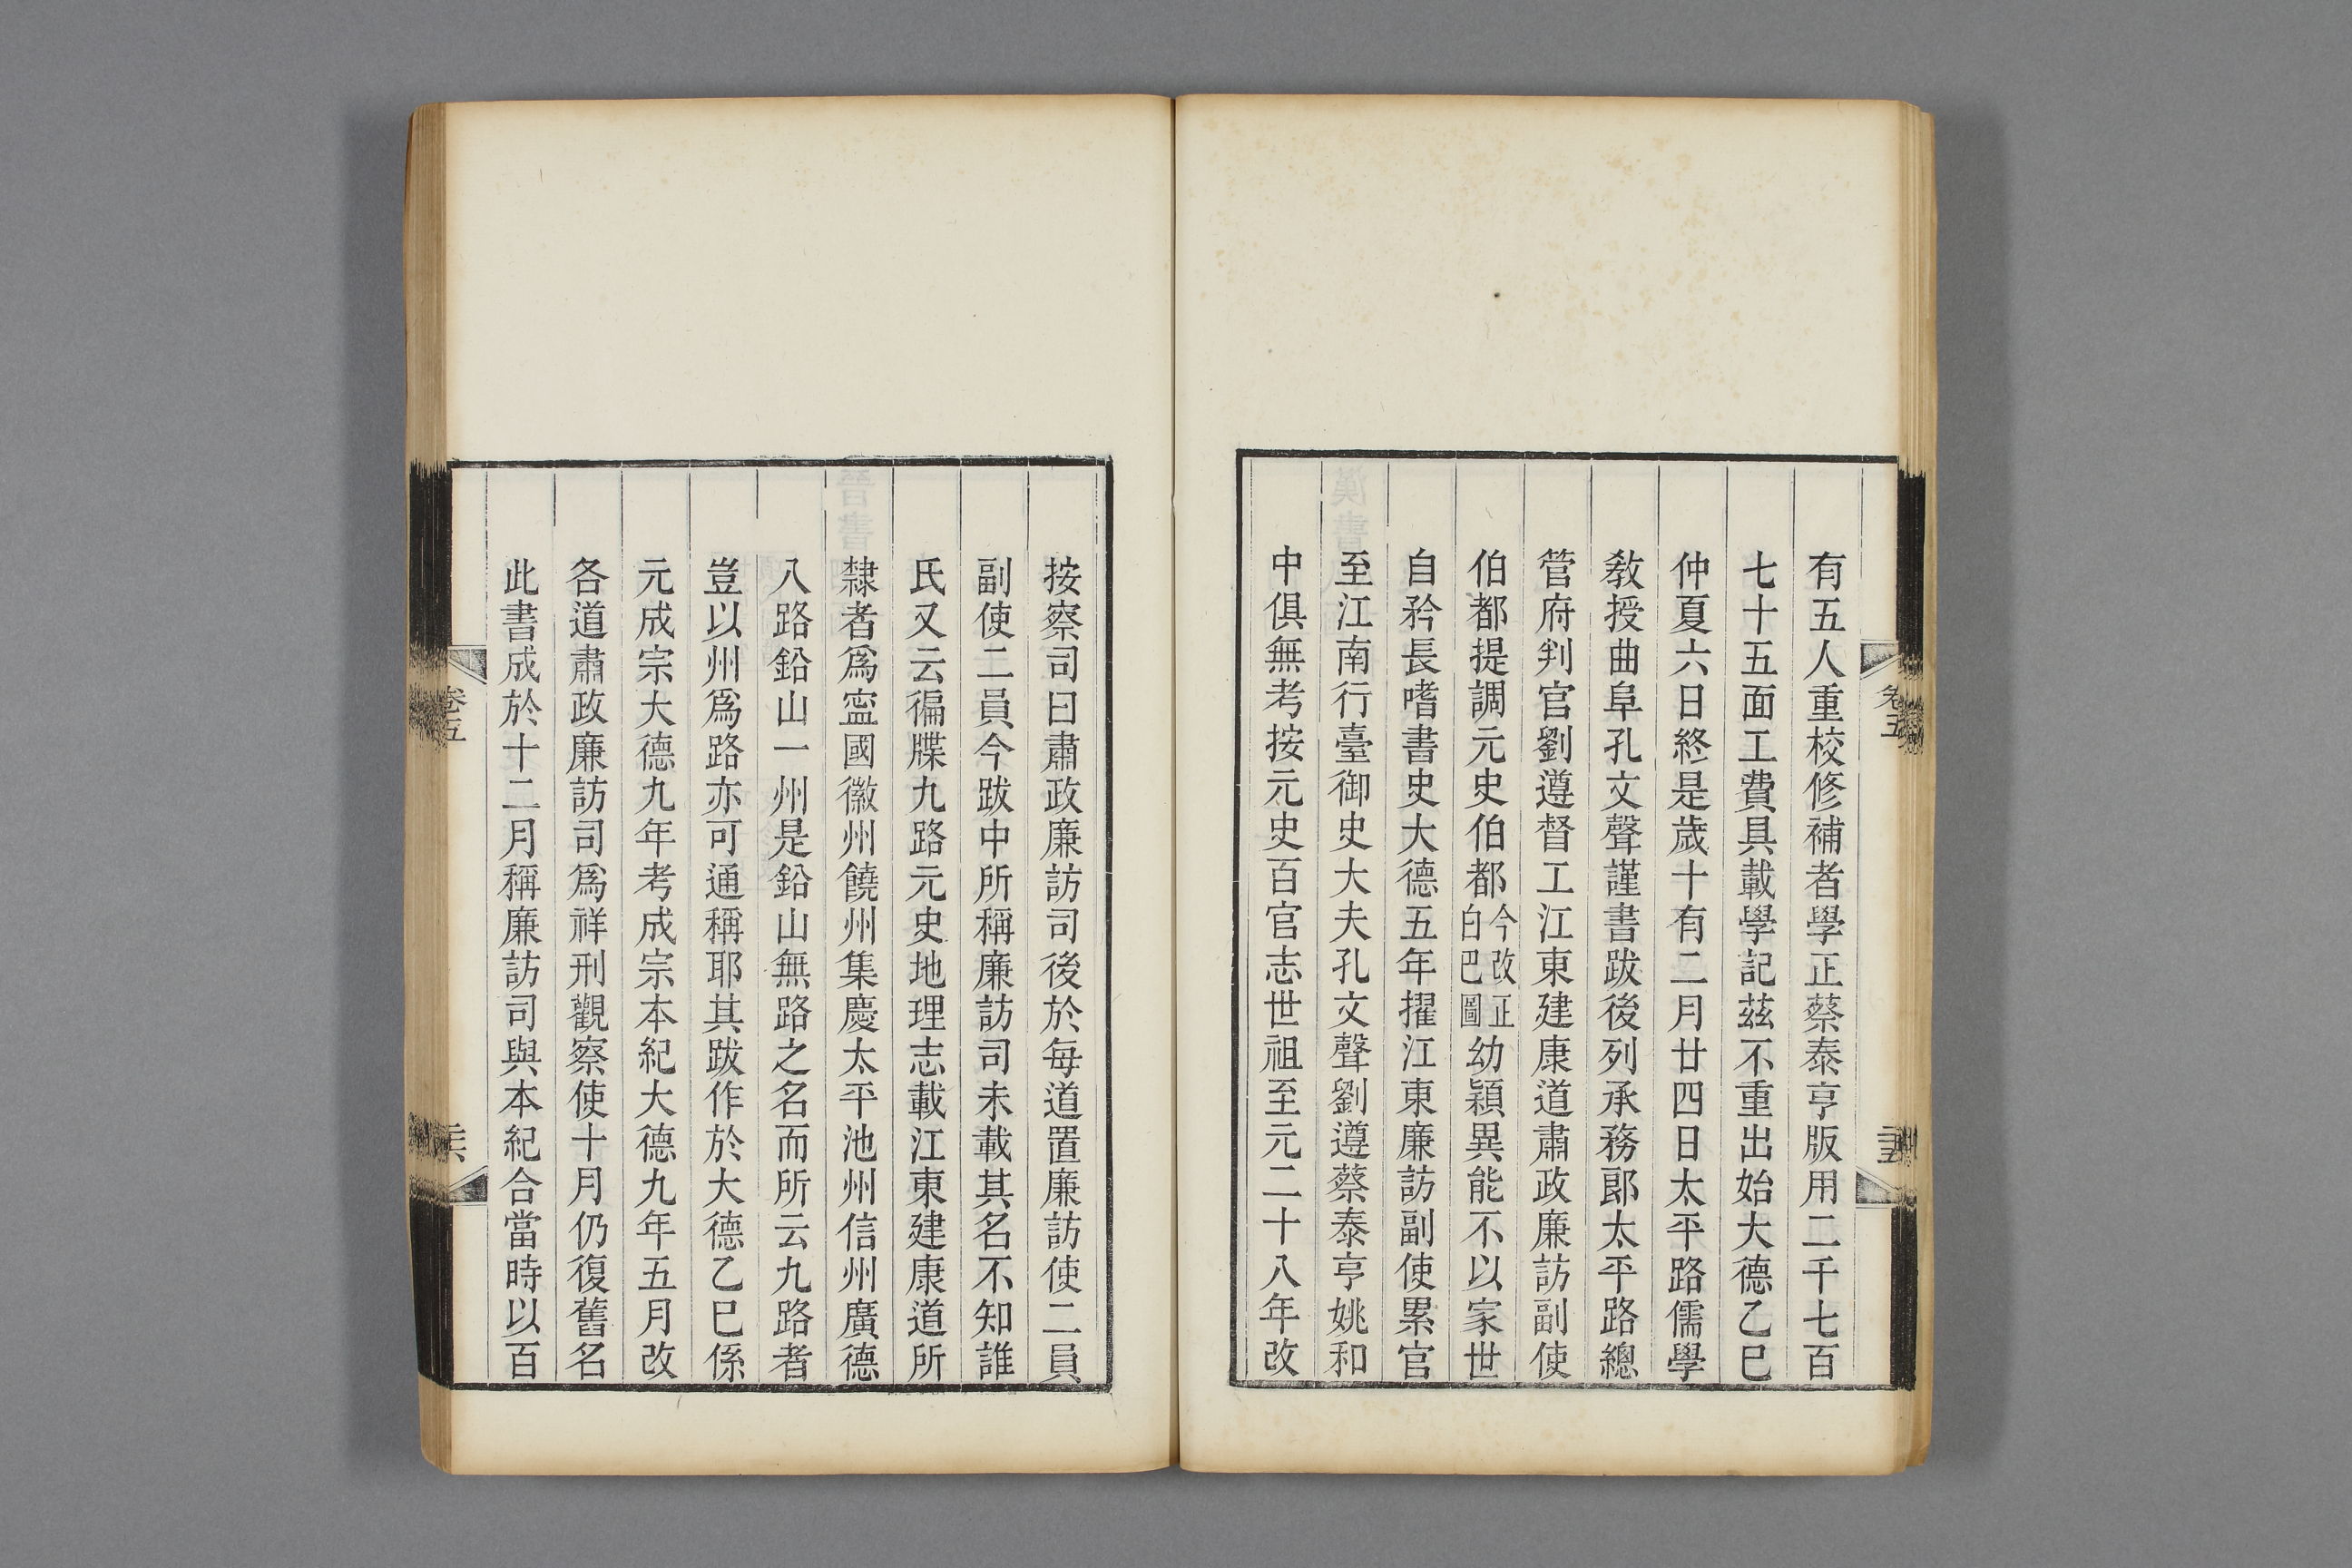 卷五
二五
有五人重校修補者學正蔡泰亨版用二千七百
七十五面工費具載學記茲不重出始大德乙巳
仲夏六日終是歲十有二月廿四日太平路儒學
敎授曲阜孔文聲謹書跋後列承務郎太平路總
管府判官劉遵督工江東建康道肅政廉訪副使
伯都提調元史伯都今改正白巴圖幼穎異能不以家世
自矜長嗜書史大德五年擢江東廉訪副使累官
至江南行臺御史大夫孔文聲劉遵蔡泰亨姚和
中俱無考按元史百官志世祖至元二十八年改
按察司曰肅政廉訪司後於每道置廉訪使二員
副使二員今跋中所稱廉訪司未載其名不知誰
氏又云徧牒九路元史地理志載江東建康道所
隸者爲寍國徽州饒州集慶太平池州信州廣德
八路鉛山一州是鉛山無路之名而所云九路者
豈以州爲路亦可通稱耶其跋作於大德乙巳係
元成宗大德九年考成宗本紀大德九年五月改
各道肅政廉訪司爲祥刑觀察使十月仍復舊名
此書成於十二月稱廉訪司與本紀合當時以百
卷五
二六